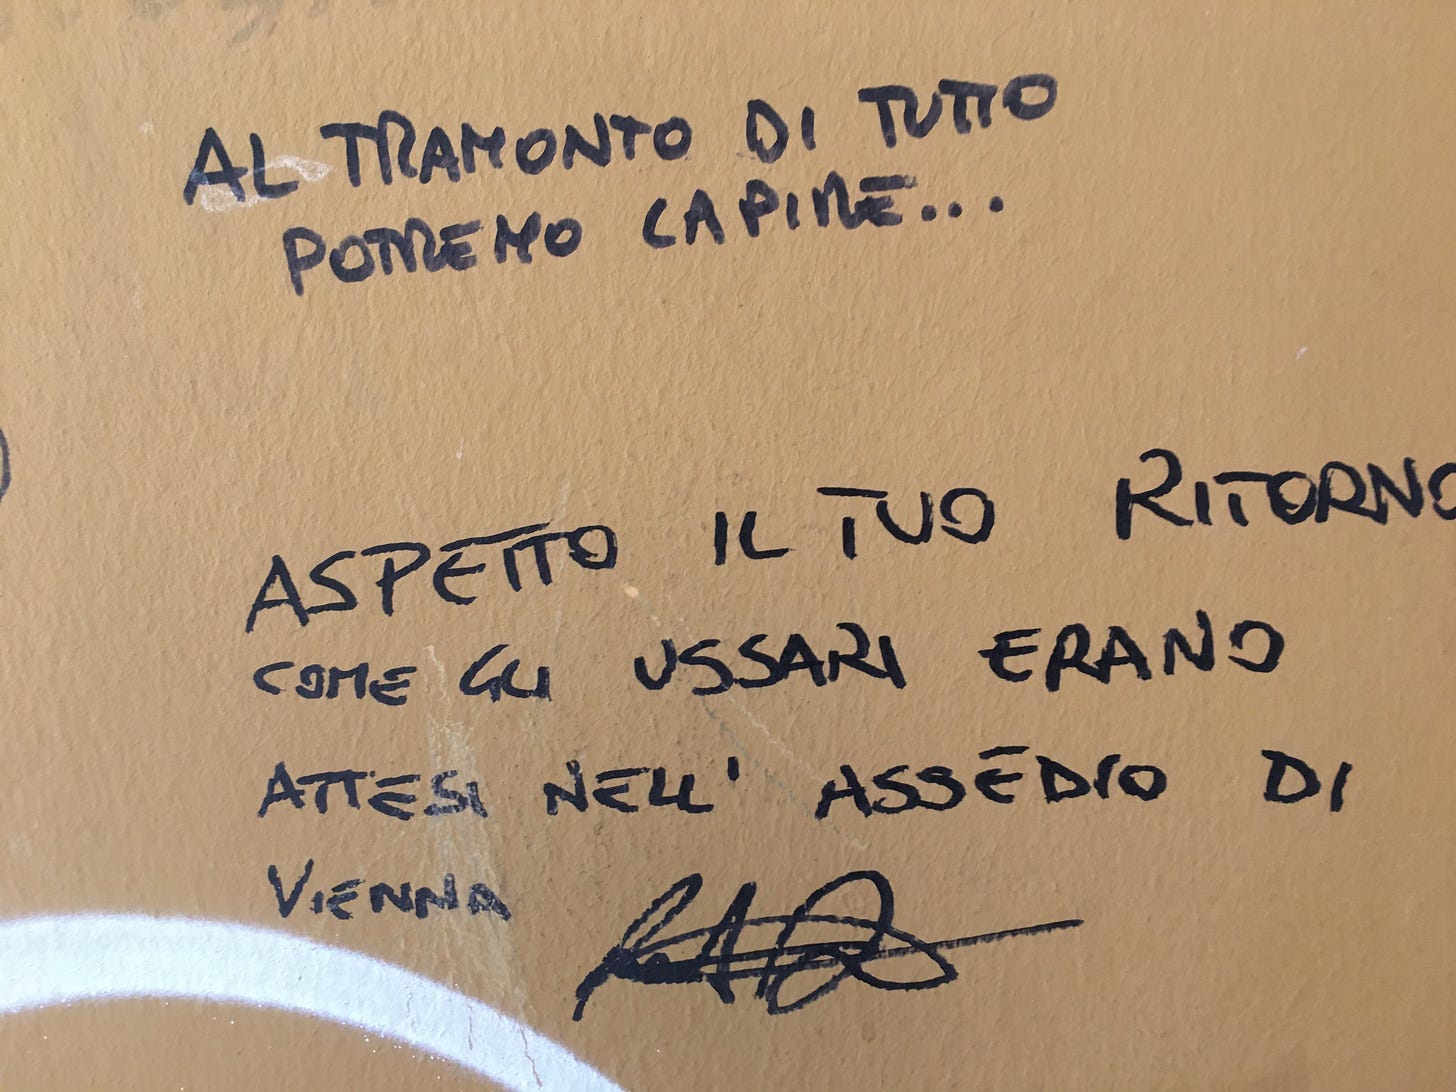 AL TRAMONTO DI TUTTO
POTREMO CAPIRE...
ASPETTO IL TUO RITORNO
COME GLI USSARI ERANO
ATTESI NELL' ASSEDIO DI
VIENNA